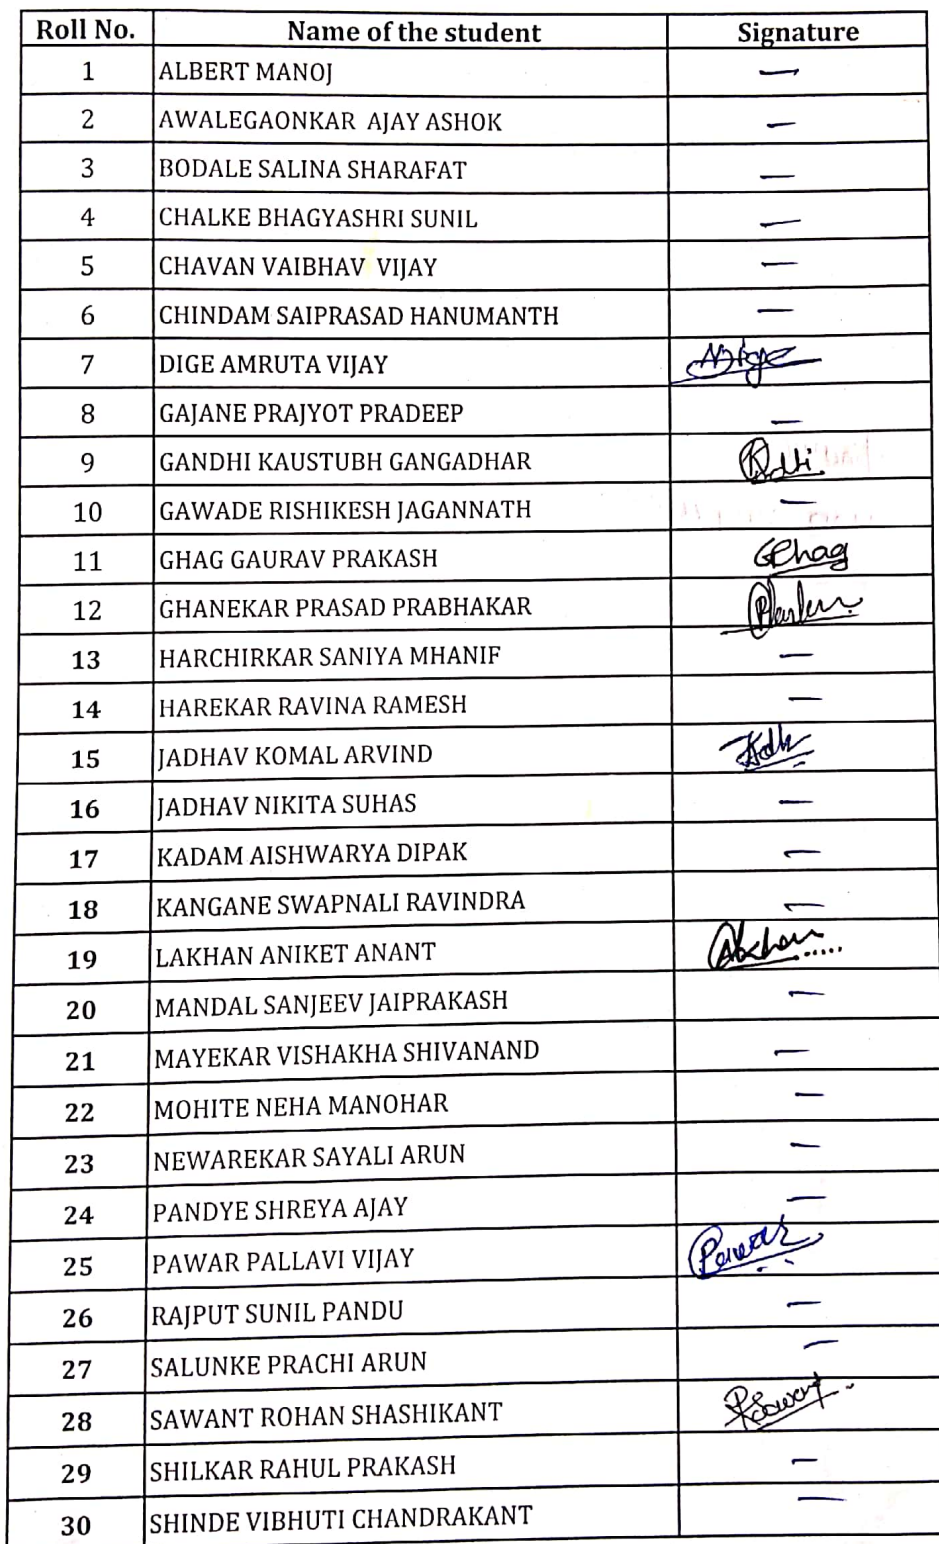 Roll No. Name of the student Signature
1 ALBERT MANOJ —
2 AWALEGAONKAR AJAY ASHOK —
3 BODALE SALINA SHARAFAT —
4 CHALKE BHAGYASHRI SUNIL —
5 CHAVAN VAIBHAV VIJAY —
6 CHINDAM SAIPRASAD HANUMANTH —
7 DIGE AMRUTA VIJAY ADige
8 GAJANE PRAJYOT PRADEEP —
9 GANDHI KAUSTUBH GANGADHAR
10 GAWADE RISHIKESH JAGANNATH —
11 GHAG GAURAV PRAKASH GPhag
12 GHANEKAR PRASAD PRABHAKAR
13 HARCHIRKAR SANIYA MHANIF —
14 HAREKAR RAVINA RAMESH —
15 JADHAV KOMAL ARVIND
16 JADHAV NIKITA SUHAS —
17 KADAM AISHWARYA DIPAK —
18 KANGANE SWAPNALI RAVINDRA —
19 LAKHAN ANIKET ANANT
20 MANDAL SANJEEV JAIPRAKASH —
21 MAYEKAR VISHAKHA SHIVANAND —
22 MOHITE NEHA MANOHAR —
23 NEWAREKAR SAYALI ARUN —
24 PANDYE SHREYA AJAY —
25 PAWAR PALLAVI VIJAY Pawar
26 RAJPUT SUNIL PANDU —
27 SALUNKE PRACHI ARUN —
28 SAWANT ROHAN SHASHIKANT RSawant
29 SHILKAR RAHUL PRAKASH —
30 SHINDE VIBHUTI CHANDRAKANT —